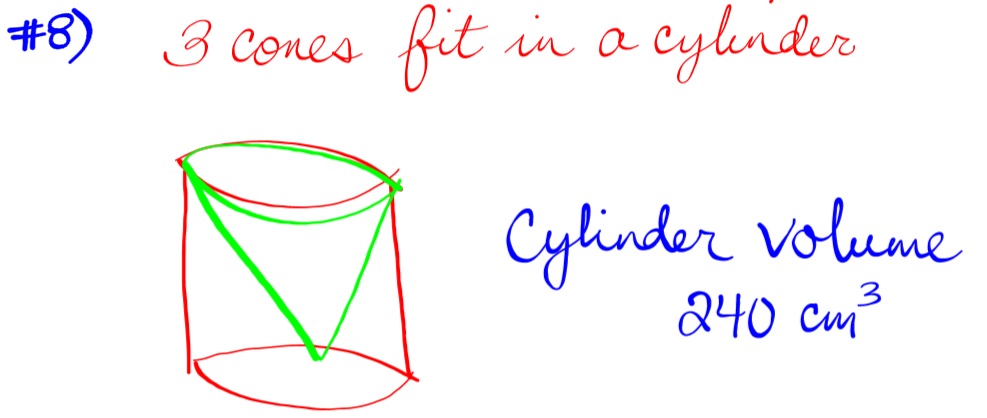 #8) 3 cones fit in a cylinder
Cylinder volume
240 cm³